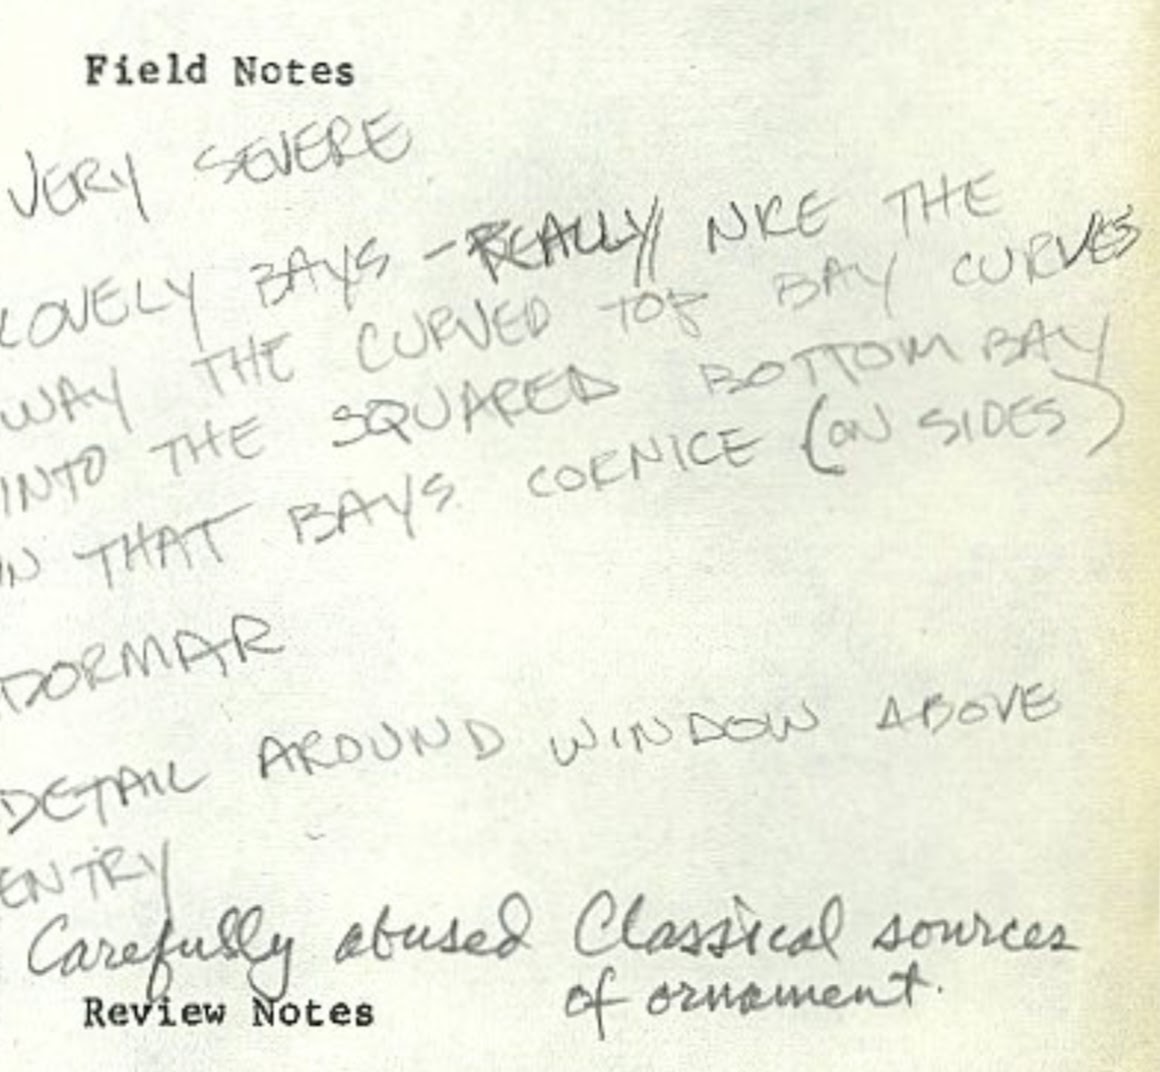 Field Notes
VERY SEVERE
LOVELY BAYS - REALLY NICE THE
WAY THE CURVED TOP BAY CURVES
INTO THE SQUARED BOTTOM BAY
IN THAT BAYS CORNICE (ON SIDES)
DORMAR
DETAIL AROUND WINDOW ABOVE
ENTRY
Carefully abused Classical sources
of ornament.
Review Notes